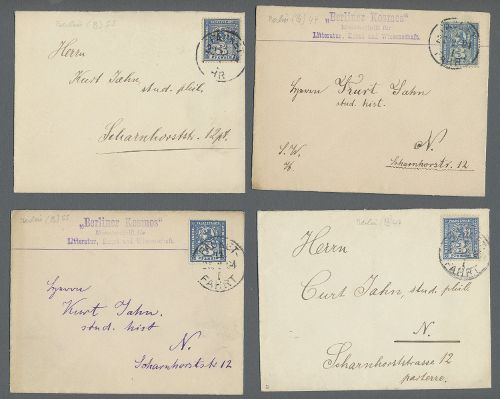 Berlin (B) 55
Herrn
Kurt Jahn,
stud. phil.
Scharnhorststr. 12pt.
Berlin (B) 44
„Berliner Kosmos"
Monatsschrift für
Litteratur, Kunst und Wissenschaft.
Herrn Kurt Jahn
stud. hist.
S. W.
N.
Scharnhorststr. 12
„Berliner Kosmos"
Monatsschrift für
Litteratur, Kunst und Wissenschaft.
FAHRT
Herrn
Kurt Jahn.
stud. hist
N.
Scharnhorststr 12
FAHRT
Herrn
Curt Jahn, stud. phil
N.
Scharnhorststrasse 12
parterre.